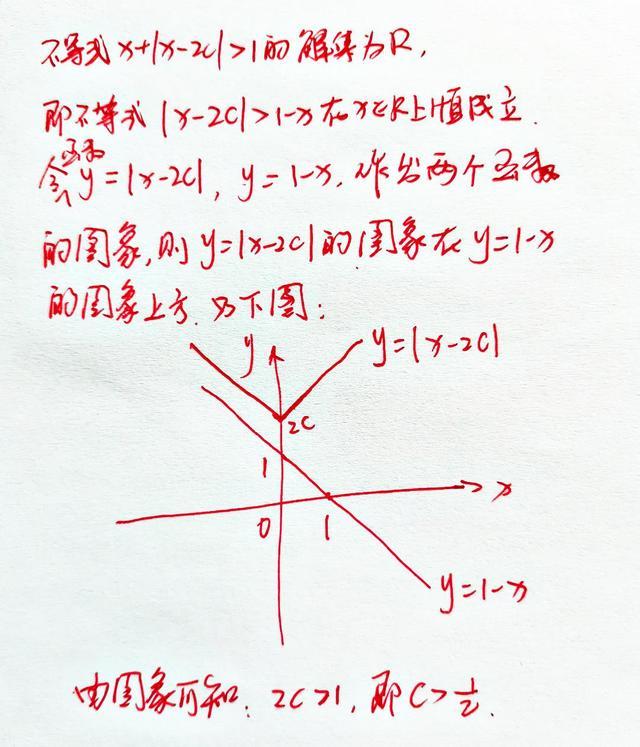 不等式 x+|x-2c|>1的解集为R,
即不等式 |x-2c|>1-x在x∈R上恒成立.
令函数y=|x-2c|, y=1-x, 作出两个函数
的图象,则y=|x-2c|的图象在y=1-x
的图象上方.如下图:
y
y=|x-2c|
2c
1
x
0
1
y=1-x
由图象可知: 2c>1, 即c>1/2.